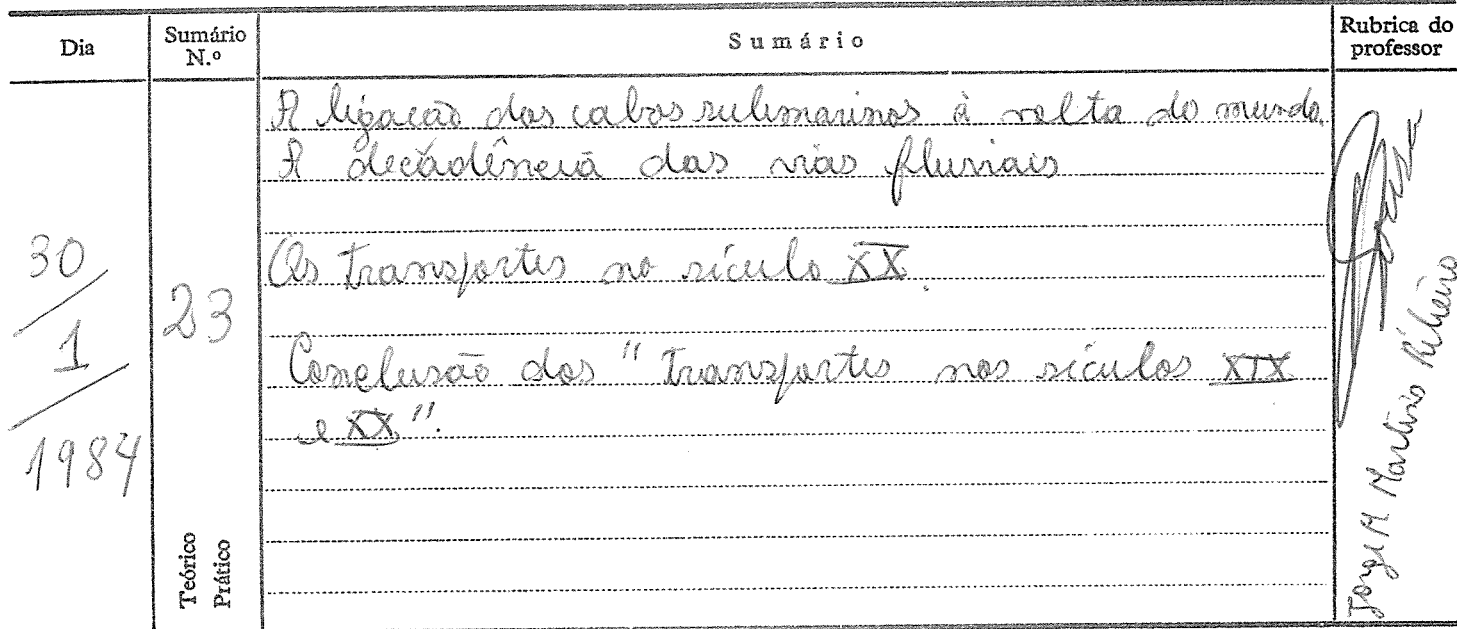 Dia
Sumário
N.º
Sumário
Rubrica do
professor
30
1
1984
23
Teórico
Prático
A ligação dos cabos submarinos à volta do mundo.
A decadência das vias fluviais
Os transportes no século XX.
Conclusão dos "Transportes nos séculos XIX
e XX".
Jorge M Martins Ribeiro